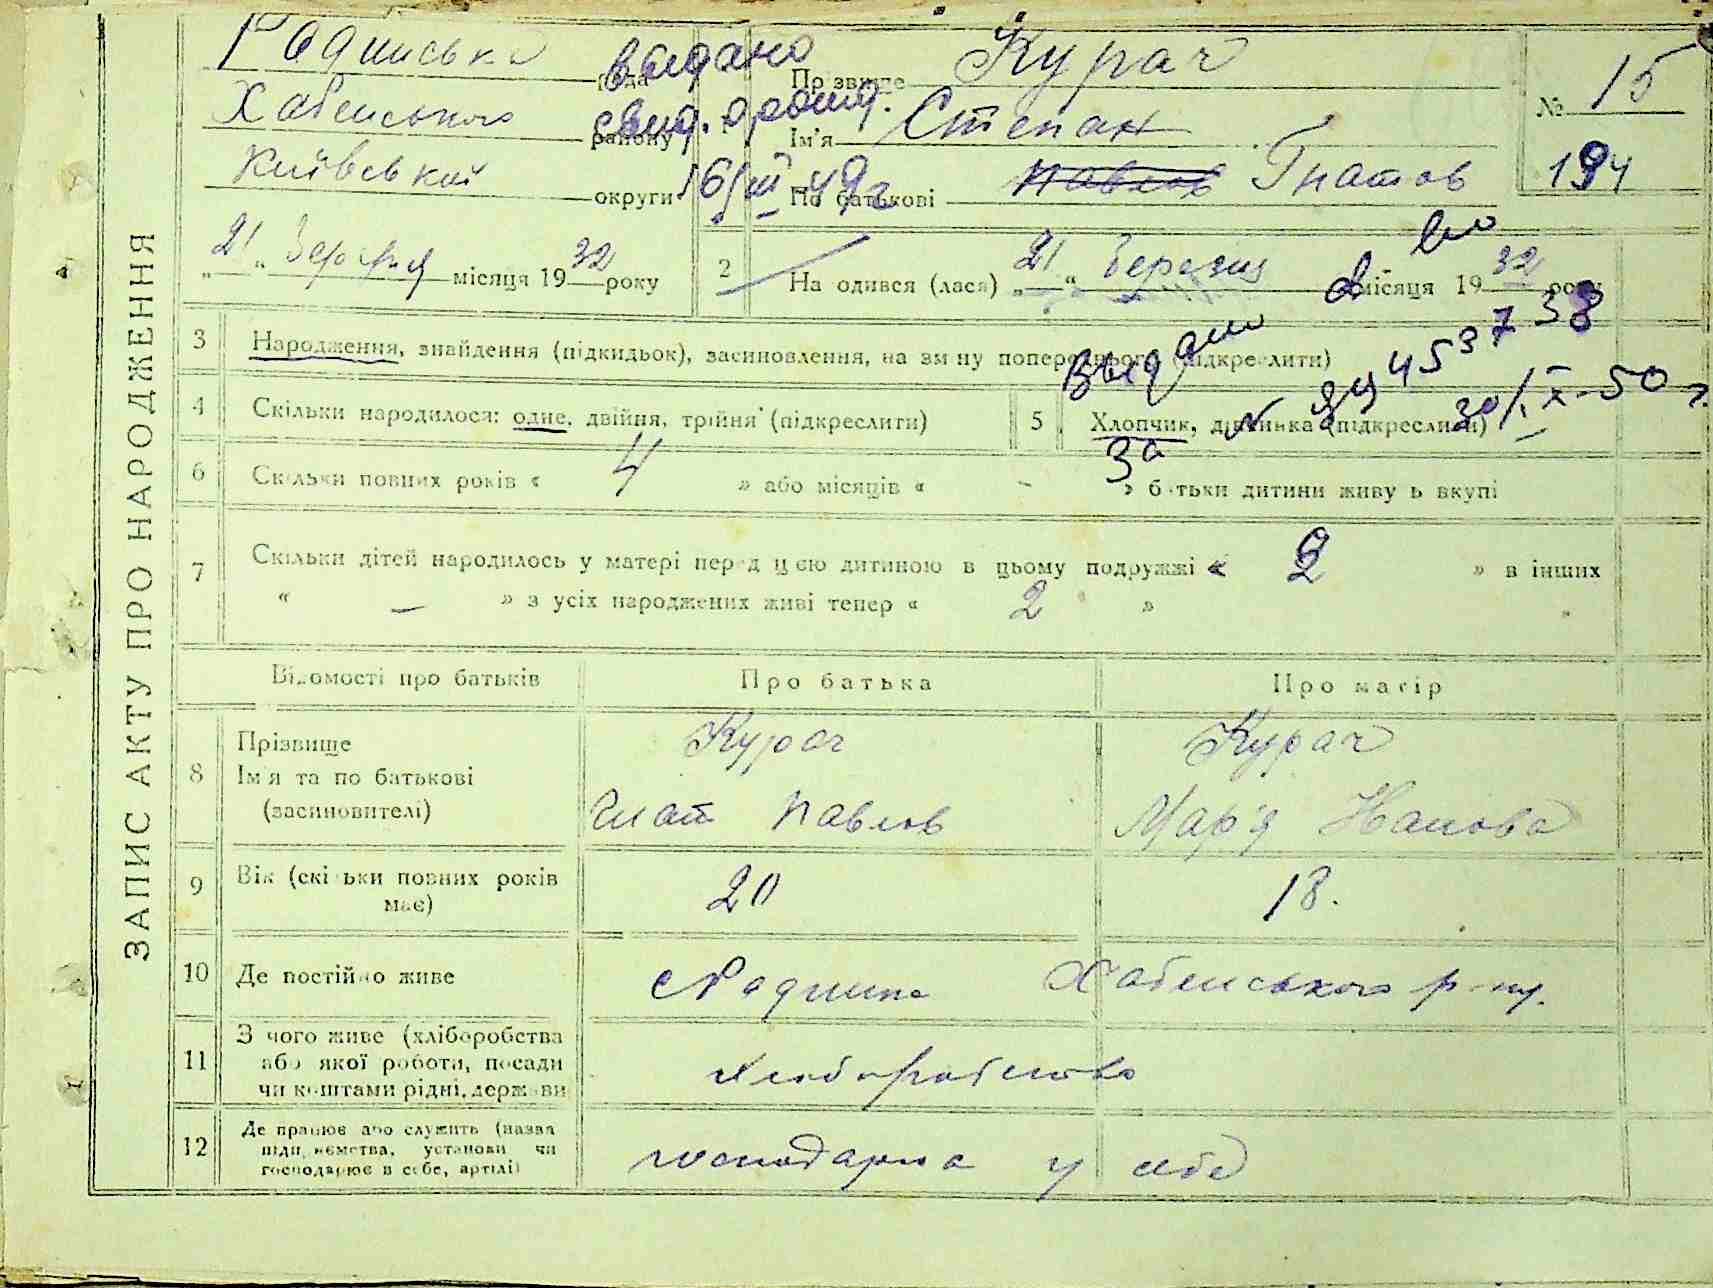 ЗАПИС АКТУ ПРО НАРОДЖЕННЯ
Радинська рада
Хабенського району
Київської округи
"21" березня місяця 1932 року
видано
свид. о рожд.
16/III-49 г.
1 Прізвище Курач
Ім'я Степан
По батькові Павлов Гнатов
№ 15
194
2 На одився (лася) "21" березня місяця 1932 року
3 Народження, знайдення (підкидьок), засиновлення, на зміну попереднього (підкреслити)
Выдано
4 Скільки народилося: одне, двійня, трійня (підкреслити)
5 Хлопчик, дівчинка (підкреслити)
за № 453738
30/IX-50 г.
6 Скільки повних років « 4 » або місяців « - » батьки дитини живуть вкупі
7 Скільки дітей народилось у матері перед цією дитиною в цьому подружжі « 2 » в інших
« — » з усіх народжених живі тепер « 2 »
Відомості про батьків Про батька Про матір
8 Прізвище
Ім'я та по батькові
(засиновителі)
Курач
Гнат Павлов
Курач
Мар'я
9 Вік (скільки повних років
має)
20
18.
10 Де постійно живе с Радинка Хабенського р-ну.
11 З чого живе (хліборобства
або якої роботи, посади
чи коштами рідні, держави
хліборобство
12 Де працює або служить (назва
підприємства, установи чи
господарює в себе, артілі)
господарює у себе